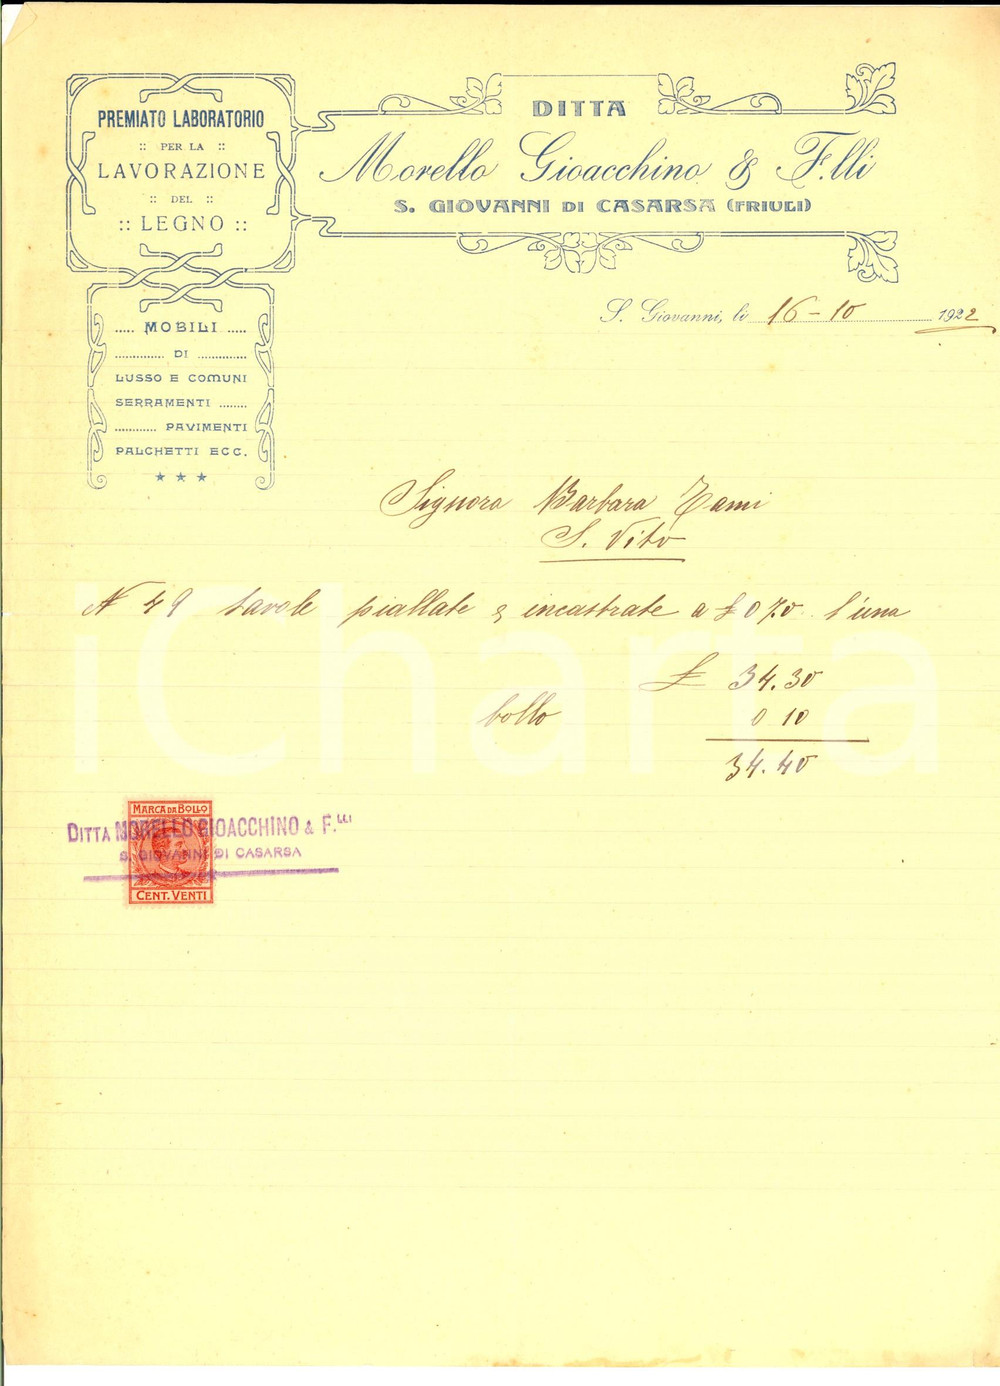 PREMIATO LABORATORIO
:: PER LA ::
LAVORAZIONE
:: DEL ::
:: LEGNO ::
DITTA
Morello Gioacchino & F.lli
S. GIOVANNI DI CASARSA (FRIULI)
..... MOBILI .....
.............. DI ..............
LUSSO E COMUNI
SERRAMENTI ........
............ PAVIMENTI
PALCHETTI ECC.
★ ★ ★
S. Giovanni, li 16-10 1922
Signora Barbara Zami
S. Vito
N 49 tavole piallate e incastrate a £ 0 70 l'una
£ 34.30
bollo 0 10
34.40
MARCA DA BOLLO
DITTA MORELLO GIOACCHINO & F.LLI
S. GIOVANNI DI CASARSA
CENT. VENTI
iCharta